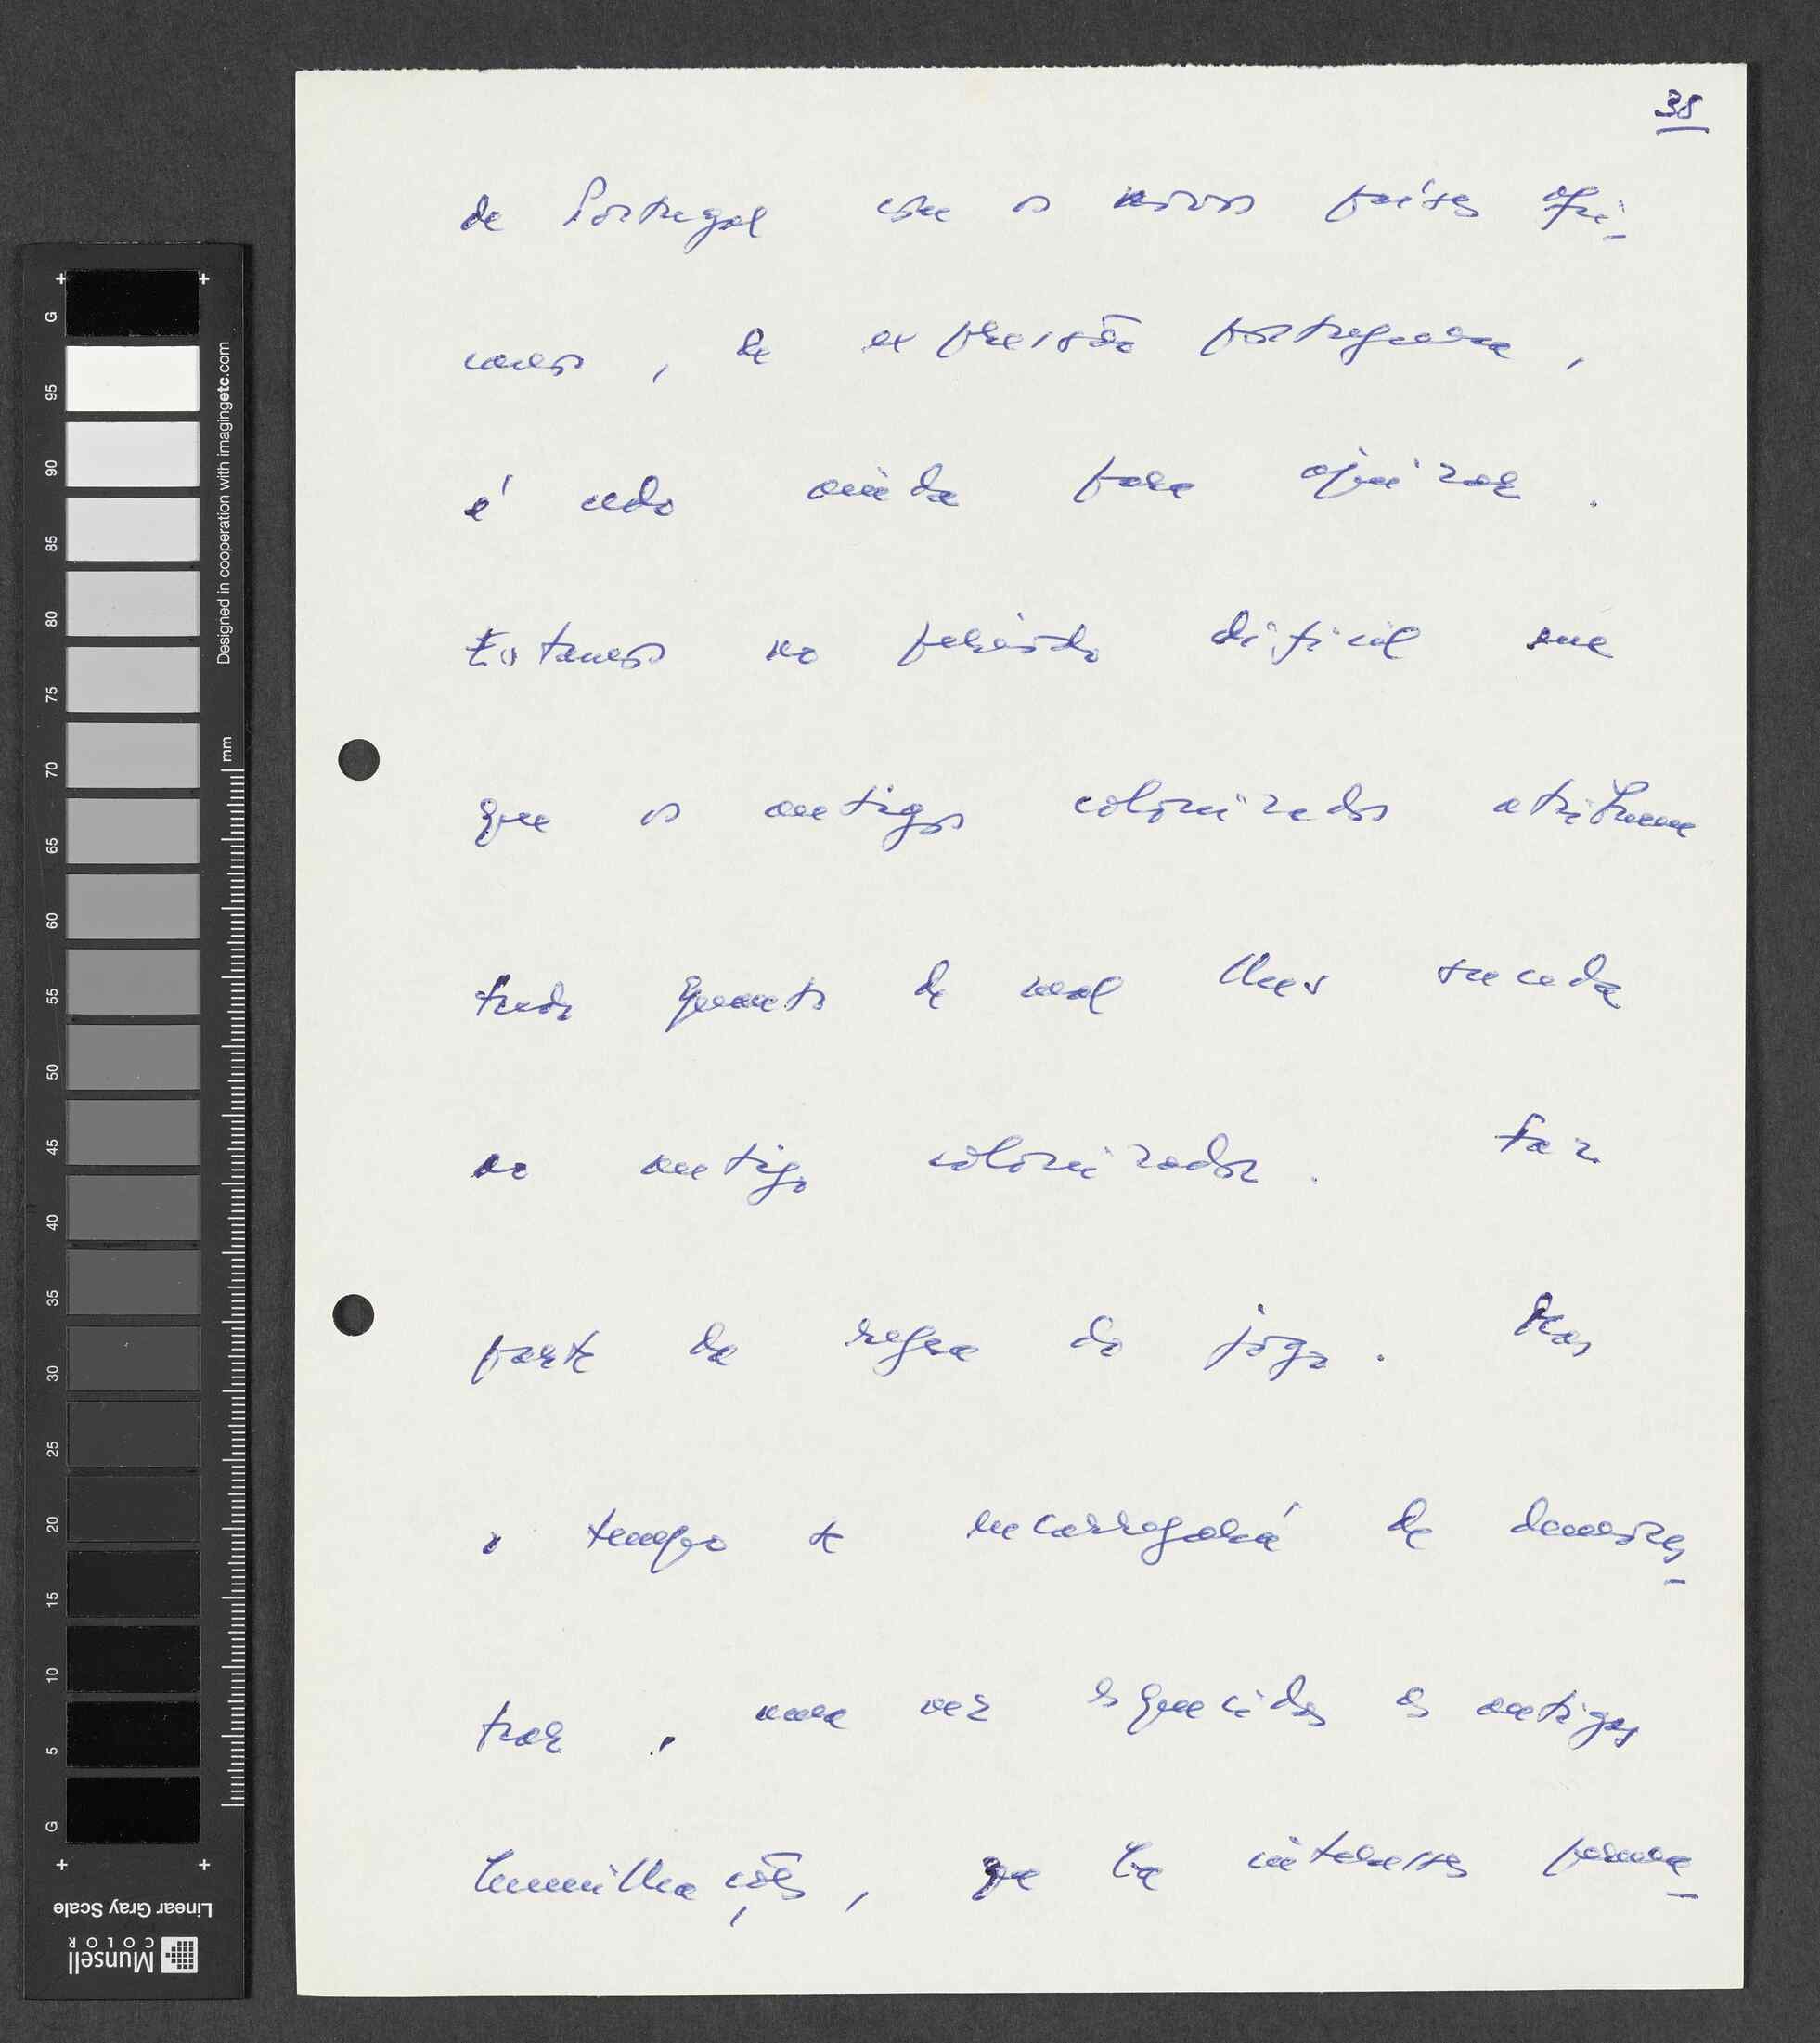 38
de Portugal com os novos países afri-
canos, de expressão portuguesa,
é cedo ainda para ajuizar.
Estamos no período difícil em
que os antigos colonizados atribuem
tudo quanto de mal lhes suceda
ao antigo colonizador. Faz
parte da regra do jogo. Mas
o tempo se encarregará de demons-
trar, uma vez esquecidas as antigas
humilhações, que há interesses perma-
G
95
90
85
80
75
70
65
60
55
50
45
40
35
30
25
20
15
10
5
G
Designed in cooperation with imagingetc.com
mm
Linear Gray Scale
Munsell
COLOR